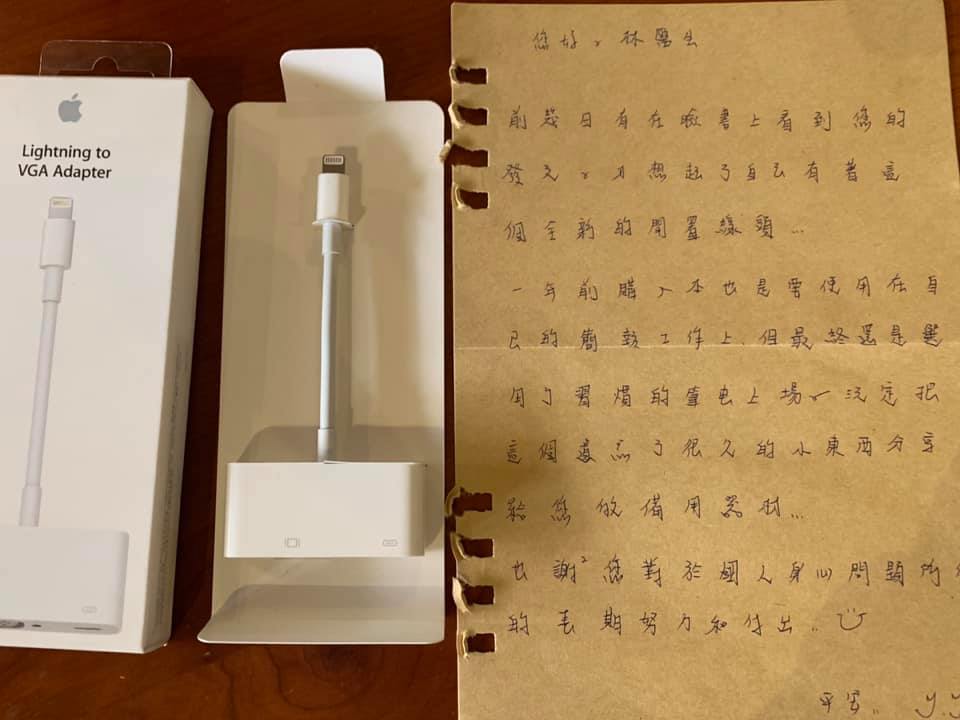 Lightning to
VGA Adapter
您好，林醫生
前幾日有在臉書上看到您的
發文，才想起了自己有著這
個全新的閒置線頭...
一年前購入本也是要使用在自
己的簡報工作上，但最終還是選
用了習慣的筆電上場，決定把
這個遺忘了很久的小東西分享
給您做備用器材...
也謝²您對於國人身心問題所
的長期努力和付出..
平安..
y.y